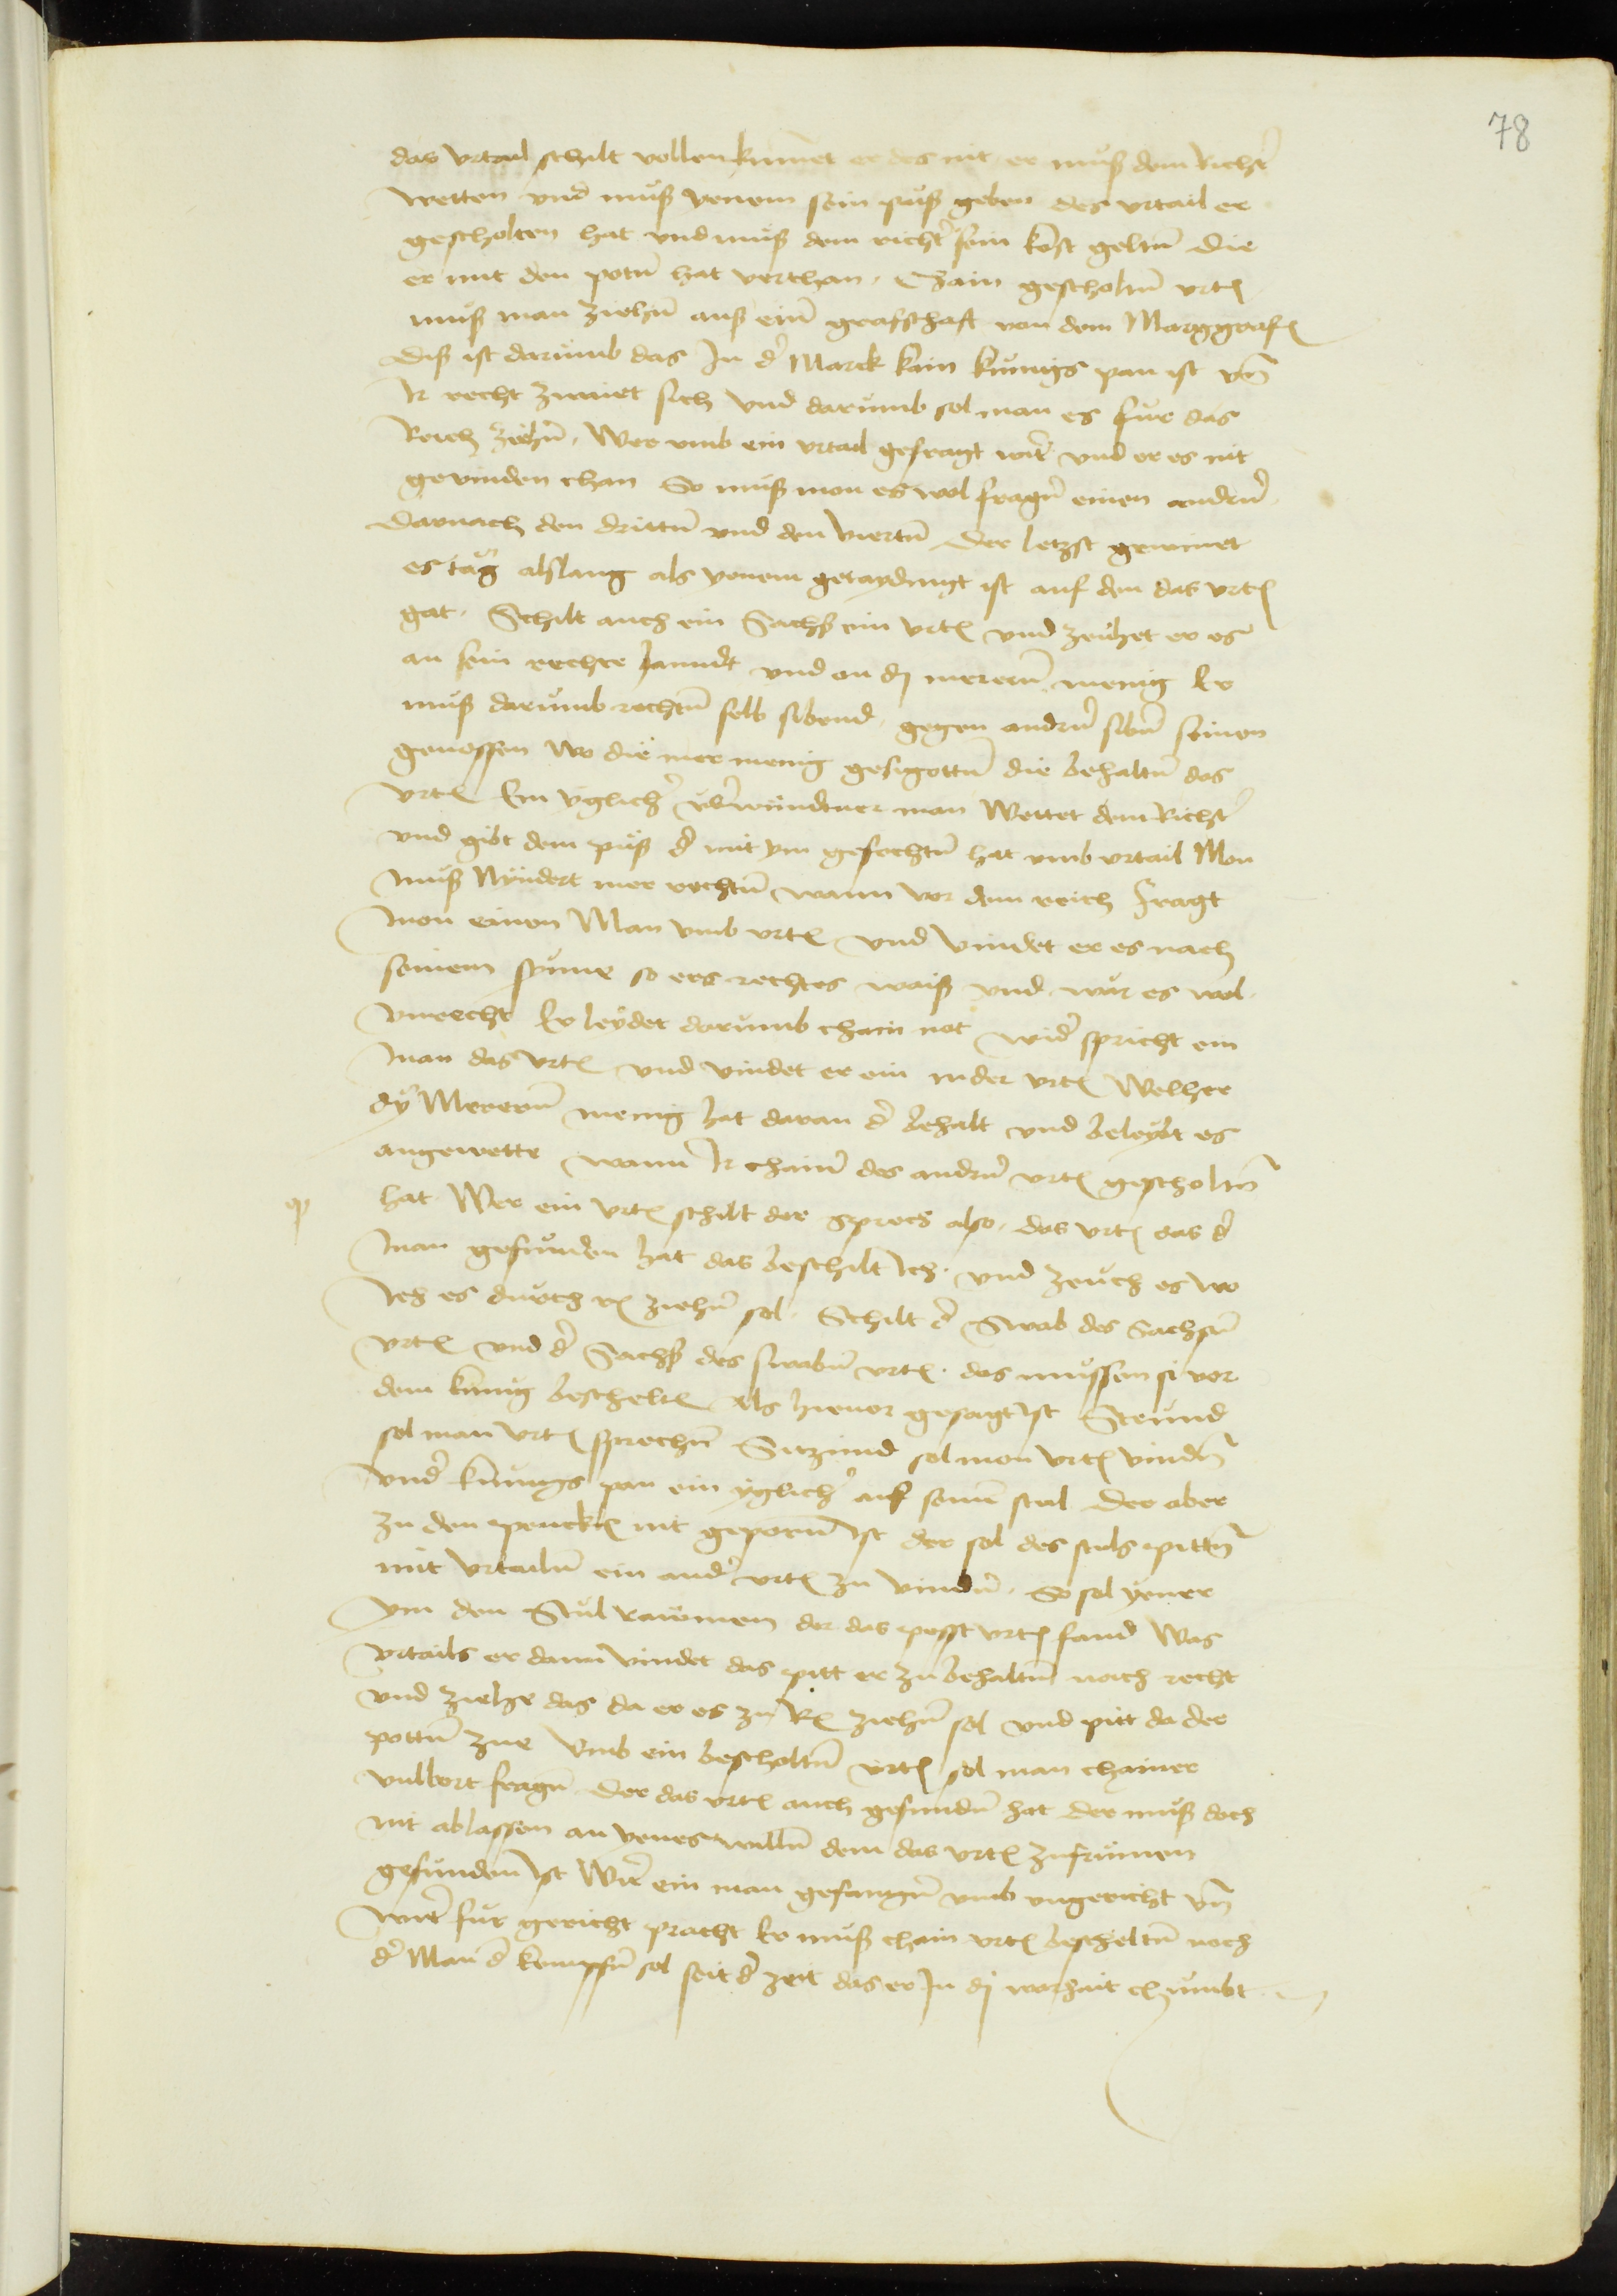 78
das vrtail schilt vollenkumet er des nit er muß dem Richt̄
wetten vnd muß yenem sein puß geben des vrtail er
gescholten hat vnd muß dem richt̄ sein kost geltn̄ die
er mit den potn̄ hat verthan. Chain gescholtn̄ vrtl̄
muß man ziehn̄ auß ein̄ grafschaft von dem Marggrafn̄
Diß ist darumb das In d̄ Marck kain kunigs pan ist vn̄
Ir recht zwaiet sich vnd darumb sol man es fur das
Reich ziehn̄. Wer vmb ein vrtail gefragt wirt vnd er es nit
gevinden chan So muß man es wol fragn̄ einen andern̄
Darnach den drittn̄ vnd den viertn̄ Der letzst gewinet
es tag alslang als yenem getaydingt ist auf den das vrtl̄
gat. Schilt auch ein Sachs ein vrtl̄ vnd zeuhet er es
an sein rechte handt vnd an dy merern̄ menig Er
muß darumb rechtn̄ selb sibend gegen andern̄ sibn̄ seinen
genossen Wo die mer menig gesigettn̄ die behaltn̄ das
vrtl̄ Ein yglich̄ vb̄wundener man Wettet dem Richt̄
vnd gibt dem puß d̄ mit ym gefochtn̄ hat vmb vrtail Man
muß Nyndert mer vechtn̄ wann vor dem reich Fragt
man einen Man vmb vrtl̄ vnd vindet er es nach
seinem synne so ers rechtes waiß vnd wär es wol
vnrecht Er leydet darumb chain not wid̄ spricht ein
man das vrtl̄ vnd vindet er ein ander vrtl̄ Welher
dy Merern̄ menig hat daran d̄ behalt vnd beleybt es
angewette wann Ir chain̄ des andern̄ vrtl̄ gescholtn̄
hat Wer ein vrtl̄ schilt der sprech also. das vrtl̄ das d̄
man gefunden hat das beschilt Ich. vnd zeuch es wo
Ich es durch r̄ ziehn̄ sol. Schilt d̄ Swab des Sachsn̄
vrtl̄ vnd d̄ Sachs des swabn̄ vrtl̄. das mussen si vor
dem kunig beschelt̄ Als hieuor gesagt ist Steund
sol man vrtl̄ sprechn̄ Sitzund sol man vrtl̄ vindn̄
vnd̄ kunigs pan ein yglich̄ auf sein̄ stul Der aber
zu den penckn̄ nit geporn̄ ist der sol des stuls pittn̄
mit vrtailn̄ ein and̄ vrtl̄ zu vindn̄. So sol yener
ym den Stul rawmen der das posst vrtl̄ fand Was
vrtails er dann vindet das pitt er zu behaltn̄ nach recht
vnd ziehe das da er es zu R̄ ziehn̄ sol vnd pitt da der
pottn̄ zue Vmb ein bescholtn̄ vrtl̄ sol man chainer
vulbort fragn̄ Der das vrtl̄ auch gefundn̄ hat der muß doch
nit ablassen an yenes willn̄ dem das vrtl̄ zufrumen
gefunden ist Wirt ein man gefangn̄ vmb vngericht vn̄
wirt fur gericht pracht Er muß chain vrtl̄ bescheltn̄ noch
d̄ Man d̄ kempfn̄ sol seit d̄ zeit das er In dy warhait chumbt